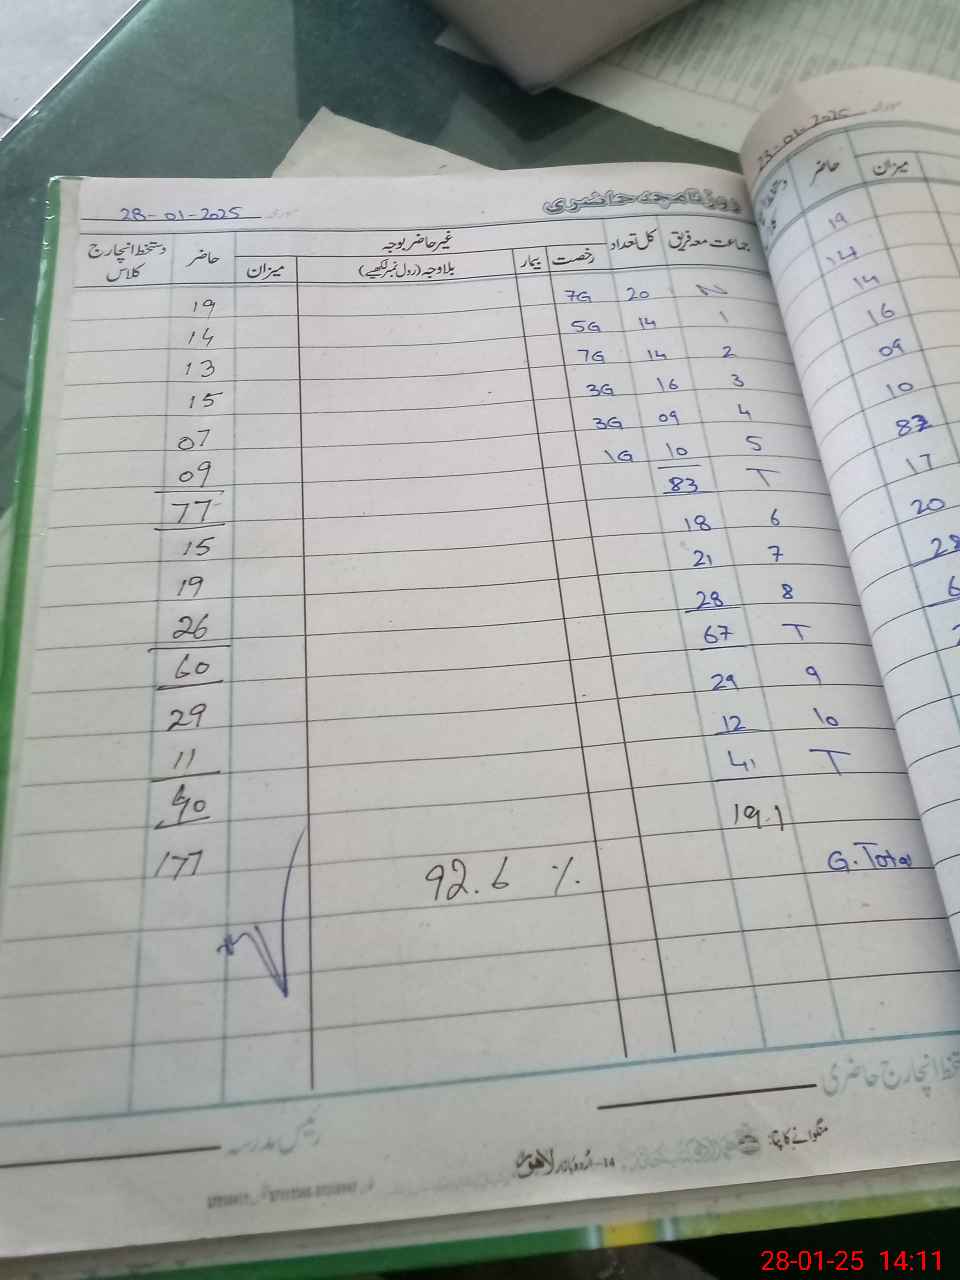 روزنامچہ حاضری
مورخہ 28-01-2025
جماعت معہ فریق کل تعداد غیر حاضر بوجہ حاضر دستخط انچارج کلاس
رخصت بیمار بلا وجہ (رول نمبر لکھیے) میزان
N 20 7G 19
1 14 5G 14
2 14 7G 13
3 16 3G 15
4 09 3G 07
5 10 1G 09
T 83 77
6 18 15
7 21 19
8 28 26
T 67 60
9 29 29
10 12 11
T 41 40
G. Total 191 177
92.6 %
دستخط انچارج حاضری
رئیس مدرسہ
منگوانے کا پتہ:
14-اردو بازار لاہور
مورخہ 23-01-2025
میزان حاضر
19
14
14
16
09
10
82
17
20
28
28-01-25 14:11